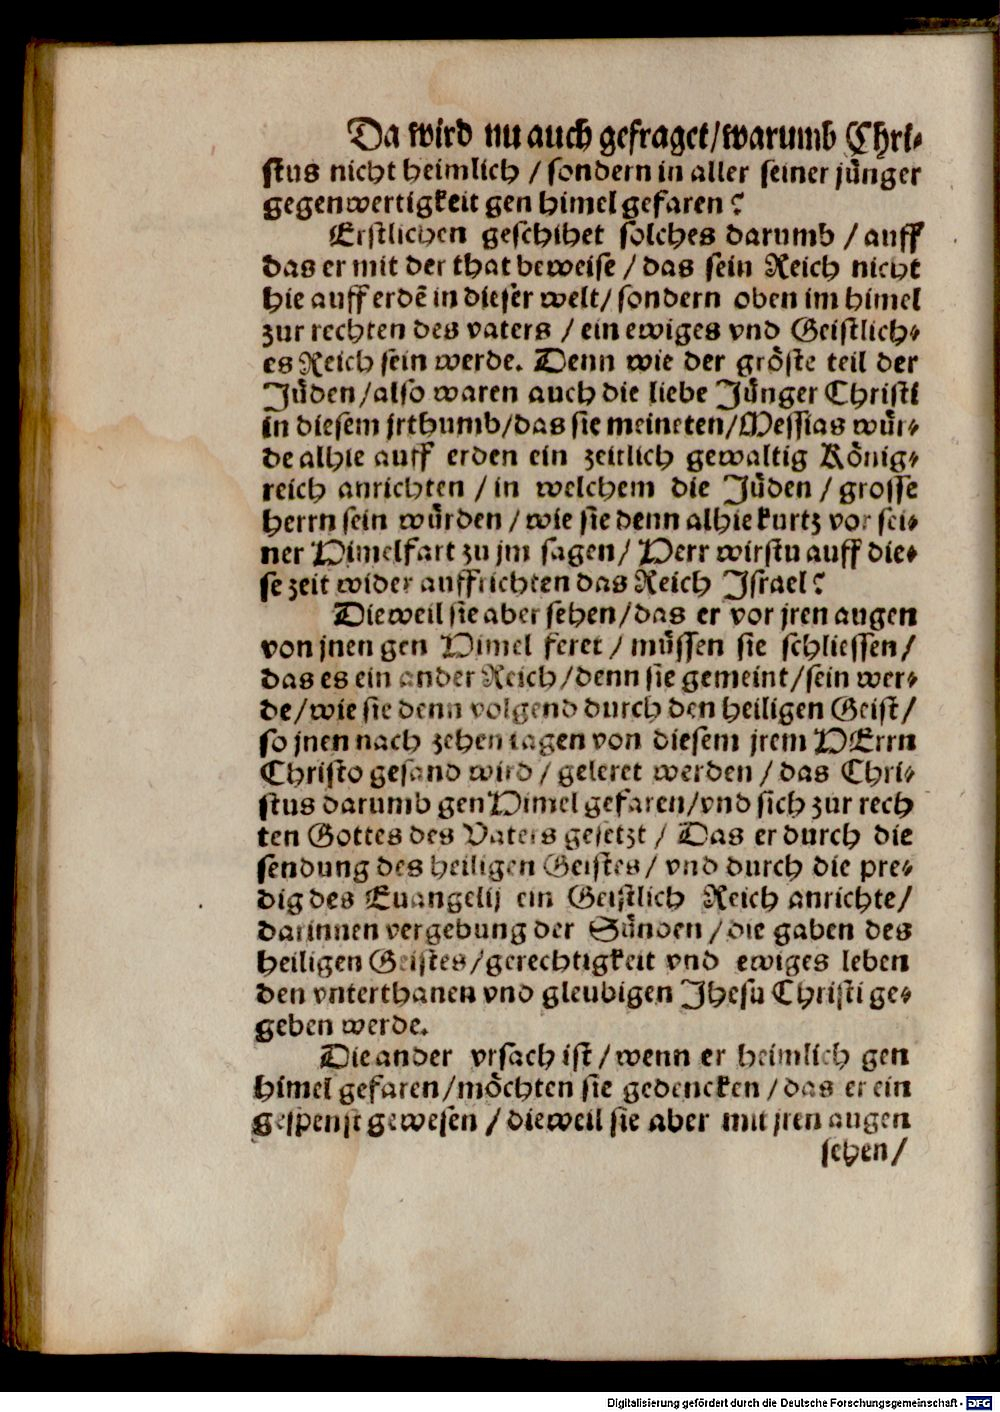 Da wird nu auch gefraget/warumb Chri⸗
stus nicht heimlich / sondern in aller seiner jünger
gegenwertigkeit gen himel gefaren?
Erstlichen geschihet solches darumb / auff
das er mit der that beweise / das sein Reich nicht
hie auff erdē in dieser welt/ sondern oben im himel
zur rechten des vaters / ein ewiges vnd Geistlich⸗
es Reich sein werde. Denn wie der gröste teil der
Jüden/also waren auch die liebe Jünger Christi
in diesem jrthumb/das sie meineten/Messias wür⸗
de alhie auff erden ein zeitlich gewaltig König⸗
reich anrichten / in welchem die Jüden / grosse
herrn sein würden / wie sie denn alhie kurtz vor sei⸗
ner Himelfart zu jm sagen/ Herr wirstu auff die⸗
se zeit wider auffrichten das Reich Jsrael?
Dieweil sie aber sehen/das er vor jren augen
von jnen gen Himel feret / müssen sie schliessen/
das es ein ander Reich/denn sie gemeint/sein wer⸗
de/wie sie denn volgend durch den heiligen Geist/
so jnen nach zehen tagen von diesem jrem HErrn
Christo gesand wird/ geleret werden / das Chri⸗
stus darumb gen Himel gefaren/vnd sich zur rech
ten Gottes des Vaters gesetzt / Das er durch die
sendung des heiligen Geistes/ vnd durch die pre⸗
dig des Euangelij ein Geistlich Reich anrichte/
darinnen vergebung der Sünden / die gaben des
heiligen Geistes/gerechtigkeit vnd ewiges leben
den vnterthanen vnd gleubigen Jhesu Christi ge⸗
geben werde.
Die ander vrsach ist / wenn er heimlich gen
himel gefaren/möchten sie gedencken / das er ein
gespenst gewesen / dieweil sie aber mit jren augen
sehen/
Digitalisierung gefördert durch die Deutsche Forschungsgemeinschaft - DFG